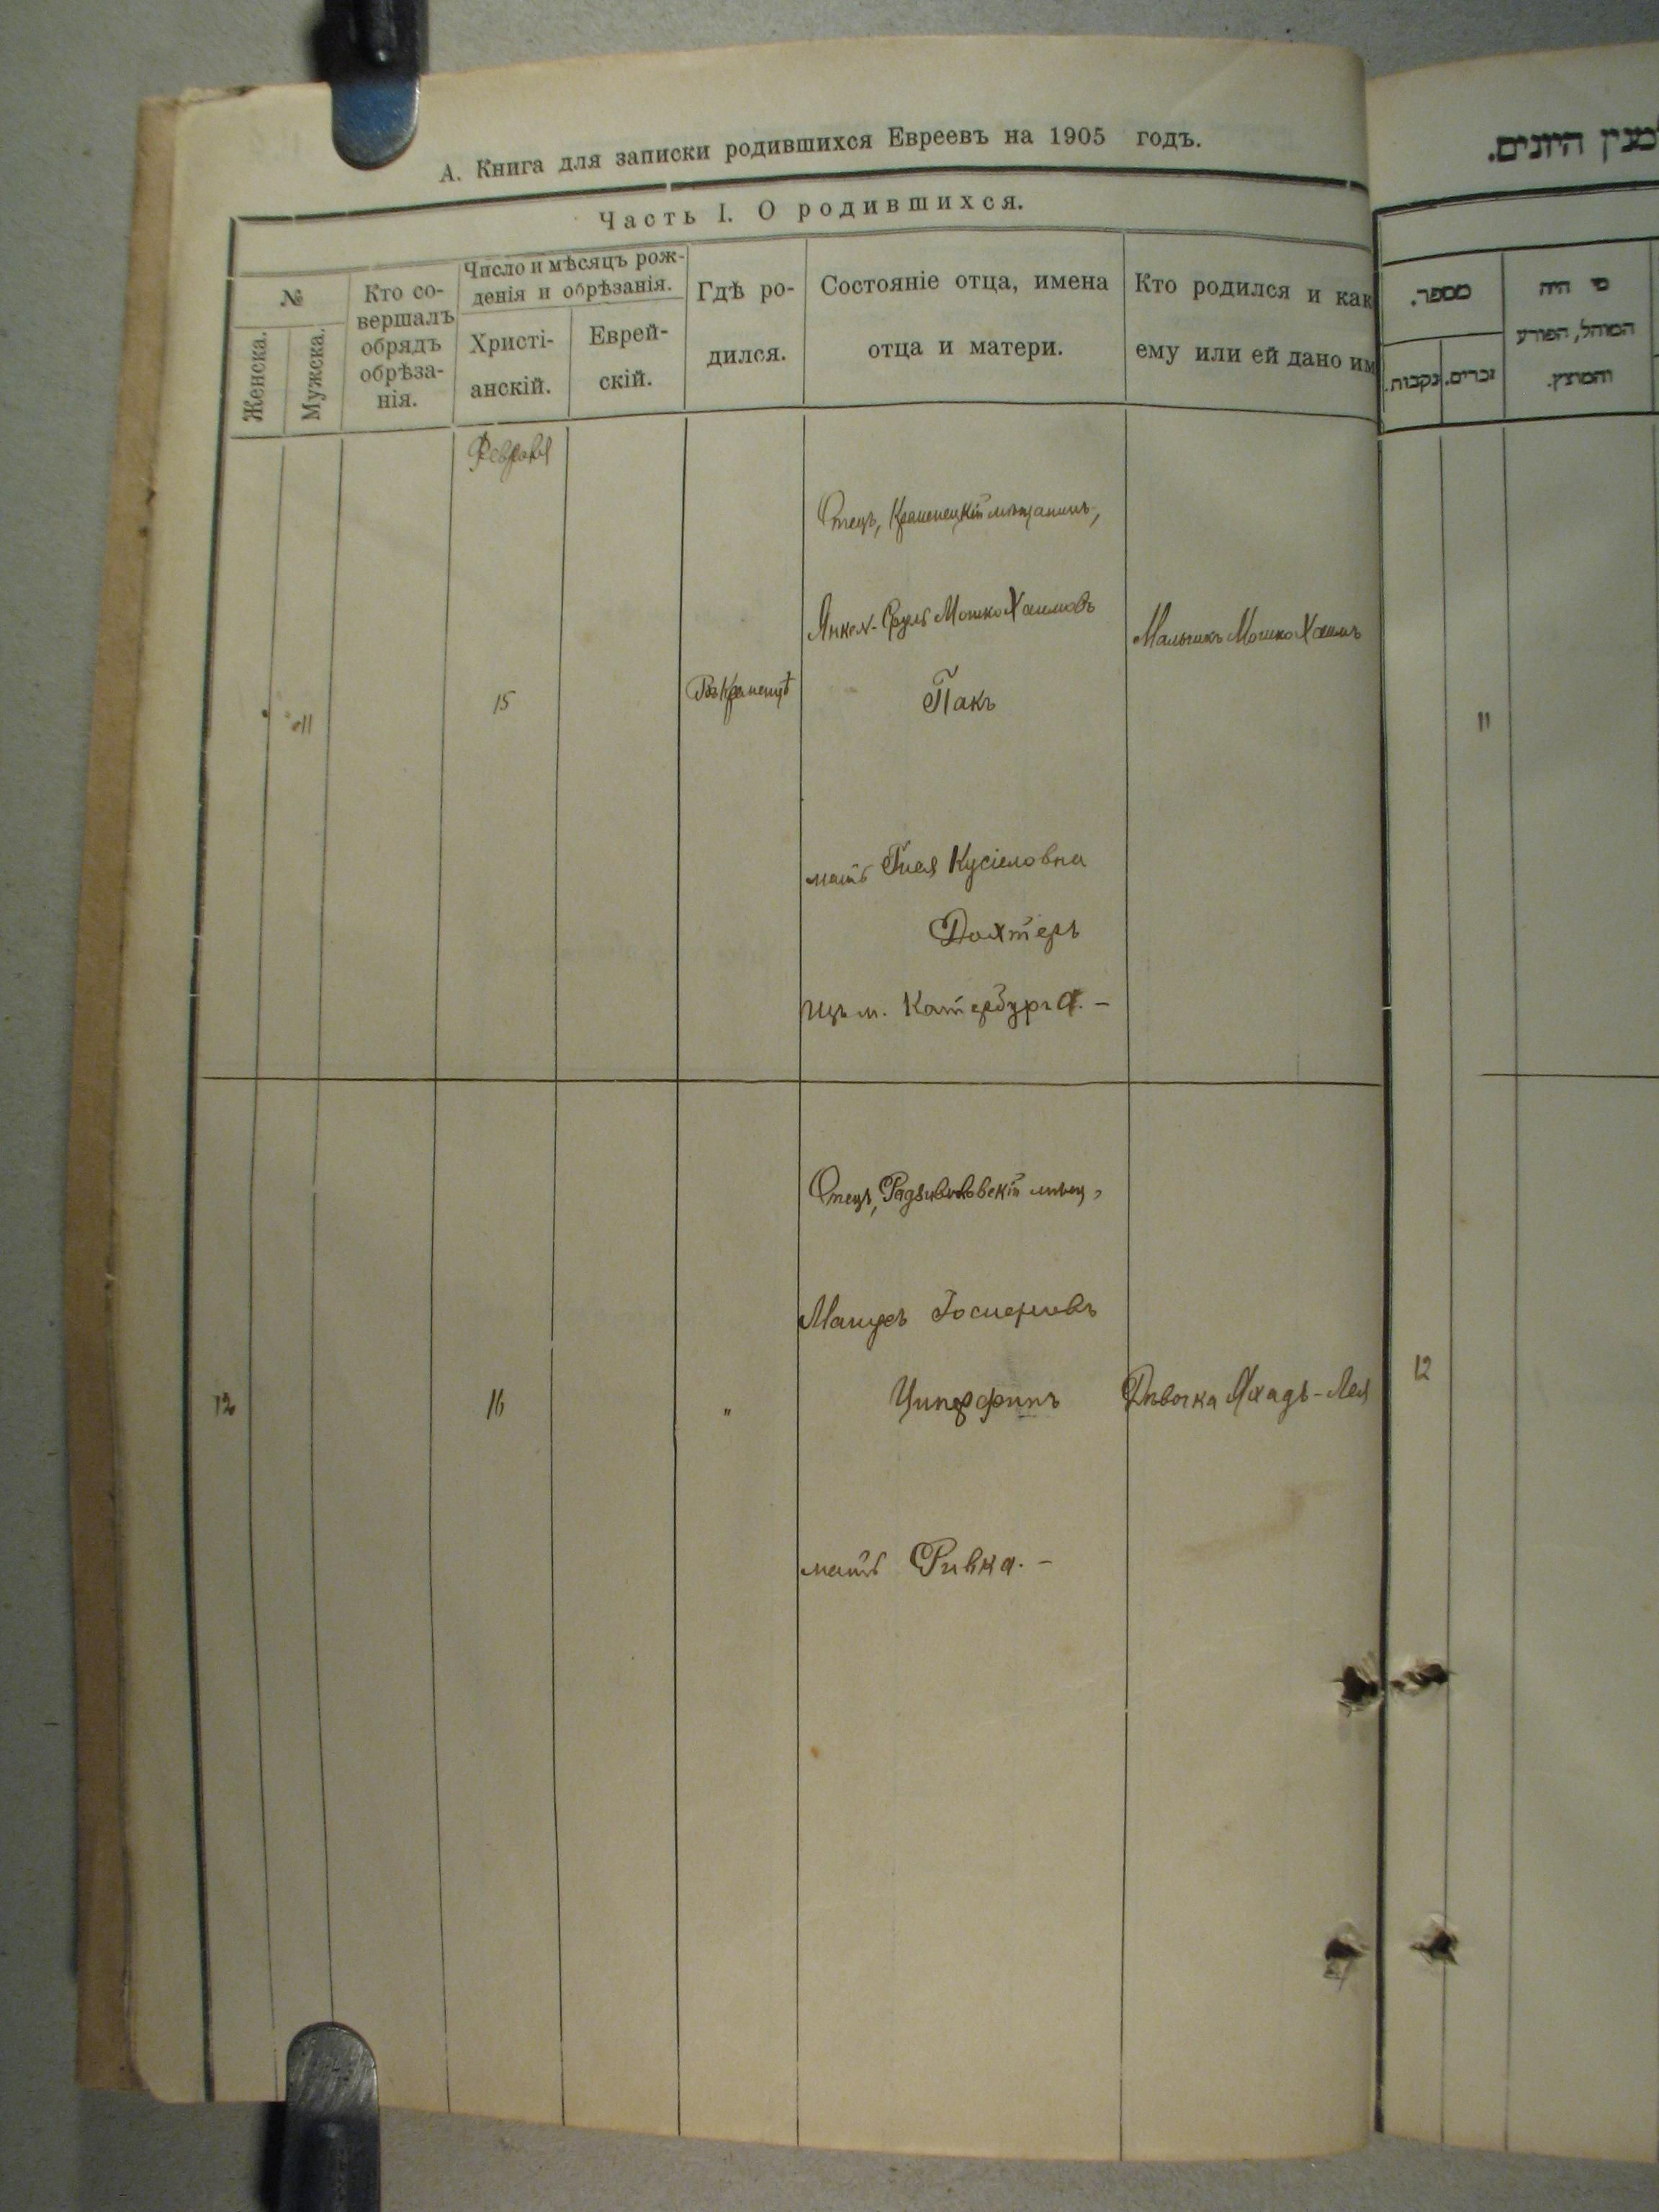 А. Книга для записки родившихся Евреевъ на 1905 годъ.
Часть I. О родившихся.
№
Женска.
Мужска.
Кто со-
вершалъ
обрядъ
обрѣза-
нія.
Число и мѣсяцъ рож-
денія и обрѣзанія.
Христі-
анскій.
Еврей-
скій.
Гдѣ ро-
дился.
Состояніе отца, имена
отца и матери.
Кто родился и как
ему или ей дано им
Февраля
11
15
Въ Кременцѣ
Отецъ, Кременецкій мѣщанинъ,
Янкел-Сруль Мошко Хаимовъ
Пакъ
мать Гнея Кусіеловна
Дохтеръ
Изъ м. Катербурга. –
Мальчикъ Мошко Хаимъ
12
16
"
Отецъ, Радзивиловскій мѣщ,
Іосиеровъ
Ципфринъ
мать Ривка. –
Дѣвочка -Лея
היונים.
מספר.
נקבות.
זכרים.
מי היה
המוהל, הפורע
והמוצץ.
11
12